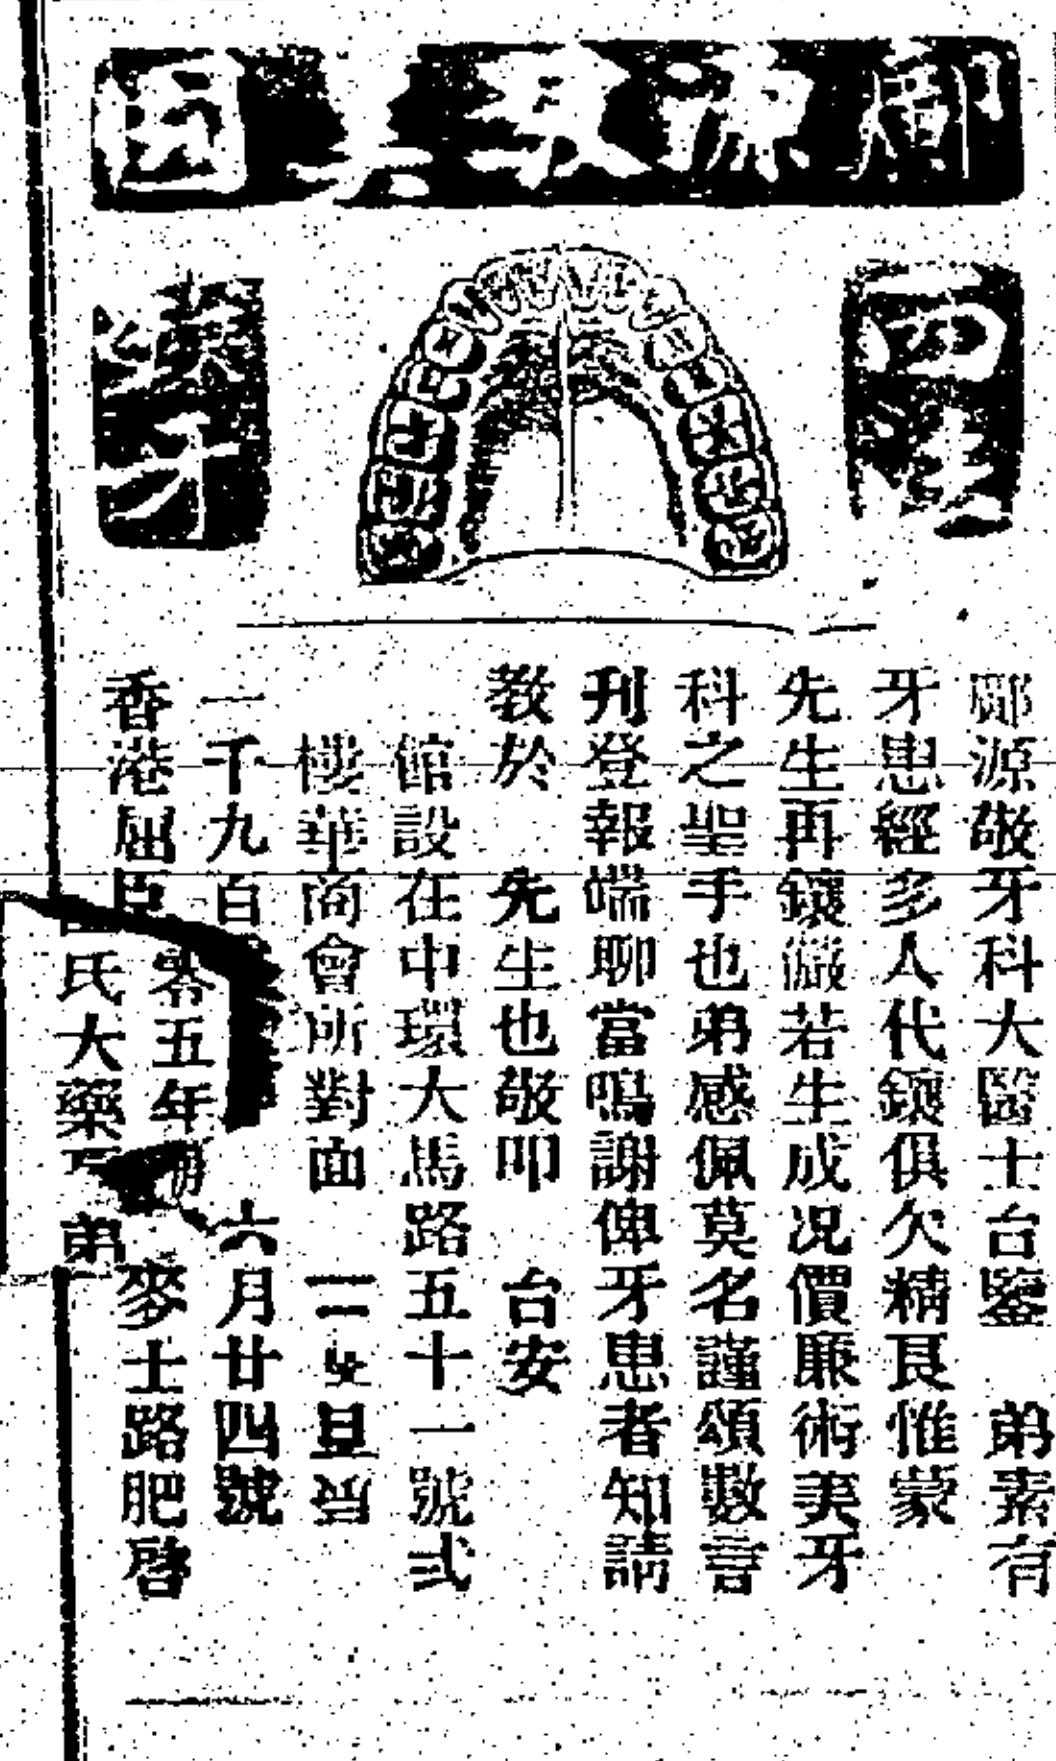 四生
鑲牙
鄺源敬牙科大醫士台鑒 弟素有
牙患經多人代鑲俱欠精良惟蒙
先生再鑲儼若生成况價廉術美牙
科之聖手也弟感佩莫名謹頌數言
刊登報端聊當鳴謝俾牙患者知請
教於 先生也敬叩 台安
館設在中環大馬路五十一號弍
樓華商會所對面
一千九百零五年 六月廿四號
香港屈臣氏大藥 弟麥士路肥啓